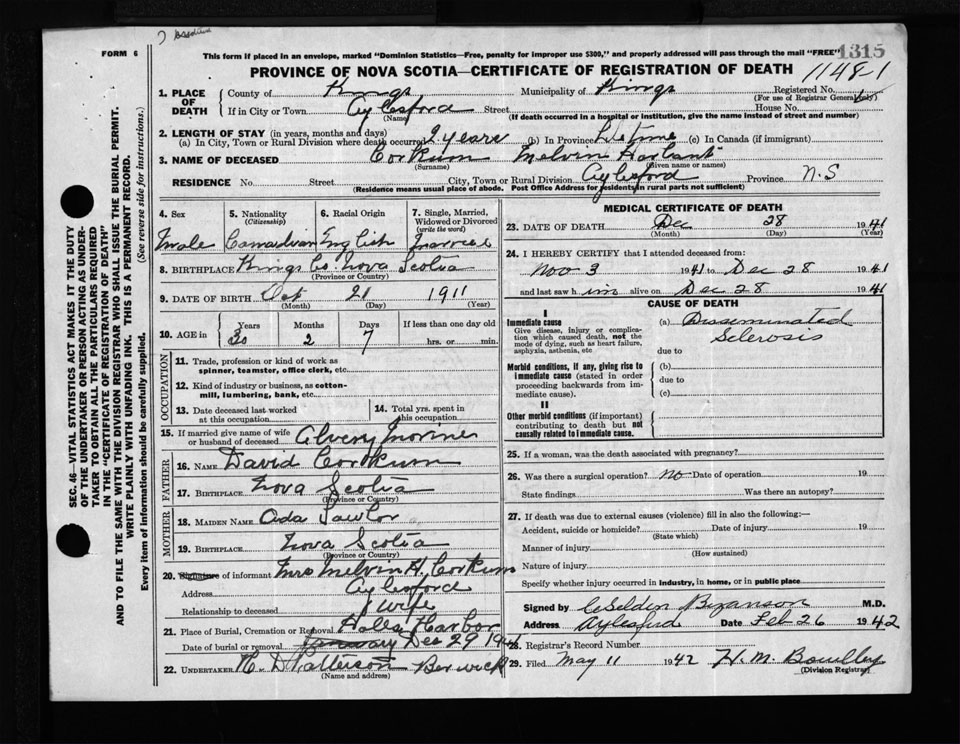 FORM 6
This form if placed in an envelope, marked "Dominion Statistics—Free, penalty for improper use $300," and properly addressed will pass through the mail "FREE"
1315
PROVINCE OF NOVA SCOTIA—CERTIFICATE OF REGISTRATION OF DEATH
1. PLACE OF DEATH
County of Kings Municipality of Kings Registered No.
(For use of Registrar General only)
If in City or Town Aylesford Street House No.
(Name) (If death occurred in a hospital or institution, give the name instead of street and number)
2. LENGTH OF STAY (in years, months and days)
(a) In City, Town or Rural Division where death occurred 2 years (b) In Province Life time (c) In Canada (if immigrant)
3. NAME OF DECEASED Corkum Melvin
(Surname) (Given name or names)
RESIDENCE No. Street City, Town or Rural Division Aylesford Province N.S
(Residence means usual place of abode. Post Office Address for residents in rural parts not sufficient)
4. Sex
male
5. Nationality (Citizenship)
Canadian
6. Racial Origin
English
7. Single, Married, Widowed or Divorced (write the word)
married
8. BIRTHPLACE Kings Co Nova Scotia
(Province or Country)
9. DATE OF BIRTH Oct 21 1911
(Month) (Day) (Year)
10. AGE in Years Months Days If less than one day
30 2 7 hrs. or min.
OCCUPATION
11. Trade, profession or kind of work as spinner, teamster, office clerk, etc.
12. Kind of industry or business, as cotton-mill, lumbering, bank, etc.
13. Date deceased last worked at this occupation
14. Total yrs. spent in this occupation
15. If married give name of wife or husband of deceased
FATHER
16. NAME David Corkum
17. BIRTHPLACE Nova Scotia
(Province or Country)
MOTHER
18. MAIDEN NAME Ada Lawlor
19. BIRTHPLACE Nova Scotia
(Province or Country)
20. Signature of informant Mrs Melvin H. Corkum
Address Aylesford
Relationship to deceased wife
21. Place of Burial, Cremation or Removal Halls Harbor
Date of burial or removal January Dec 29 1941
22. UNDERTAKER Patterson Berwick
(Name and address)
MEDICAL CERTIFICATE OF DEATH
23. DATE OF DEATH Dec 28 1941
(Month) (Day) (Year)
24. I HEREBY CERTIFY that I attended deceased from:
Nov 3 1941 to Dec 28 1941
and last saw him alive on Dec 28 1941
CAUSE OF DEATH
I
Immediate cause
Give disease, injury or complication which caused death, not the mode of dying, such as heart failure, asphyxia, asthenia, etc
(a) Disseminated Sclerosis
due to
Morbid conditions, if any, giving rise to immediate cause (stated in order proceeding backwards from immediate cause).
(b)
due to
(c)
II
Other morbid conditions (if important) contributing to death but not causally related to immediate cause.
25. If a woman, was the death associated with pregnancy?
26. Was there a surgical operation? No Date of operation 19
State findings Was there an autopsy?
27. If death was due to external causes (violence) fill in also the following:—
Accident, suicide or homicide? Date of injury 19
(State which)
Manner of injury
(How sustained)
Nature of injury
Specify whether injury occurred in industry, in home, or in public place
Signed by Selden Bezanson M.D.
Address Aylesford Date Feb 26 1942
28. Registrar's Record Number
29. Filed May 11 1942 H. M.
(Division Registrar)
SEC. 46—VITAL STATISTICS ACT MAKES IT THE DUTY
OF THE UNDERTAKER OR PERSON ACTING AS UNDER-
TAKER TO OBTAIN ALL THE PARTICULARS REQUIRED
IN THE "CERTIFICATE OF REGISTRATION OF DEATH"
AND TO FILE THE SAME WITH THE DIVISION REGISTRAR WHO SHALL ISSUE THE BURIAL PERMIT.
WRITE PLAINLY WITH UNFADING INK. THIS IS A PERMANENT RECORD.
Every item of information should be carefully supplied.
(See reverse side for instructions.)